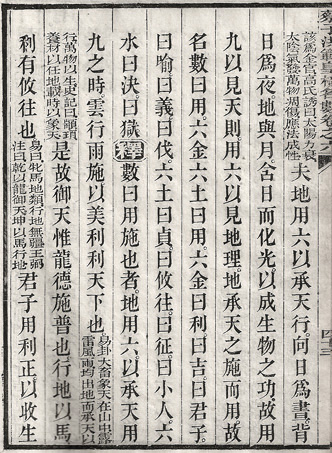 該爲金官高氏誘曰太陽力衰
太陰氣發萬物周傷應法成性
夫地用六以承天行向日爲晝背
日爲夜地與月含日而化光以成生物之功故用
九以見天則用六以見地理地承天之施而用故
名數曰用六金六土曰用六金曰利曰吉曰君子
曰喻曰義曰伐六土曰貞曰攸往曰征曰小人六
水曰決曰獄釋數曰用施也者地用六以承天用
九之時雲行雨施以美利利天下也
易卦大畜象天在山中露
雷風雨均出地而承天以
行萬物以生史記曰顓頊
養材以任地載時以象天
是故御天惟龍德施普也行地以馬
利有攸往也
易曰牝馬地類行地無疆王弼
注曰乾以龍御天坤以馬行地
君子用利正以收生